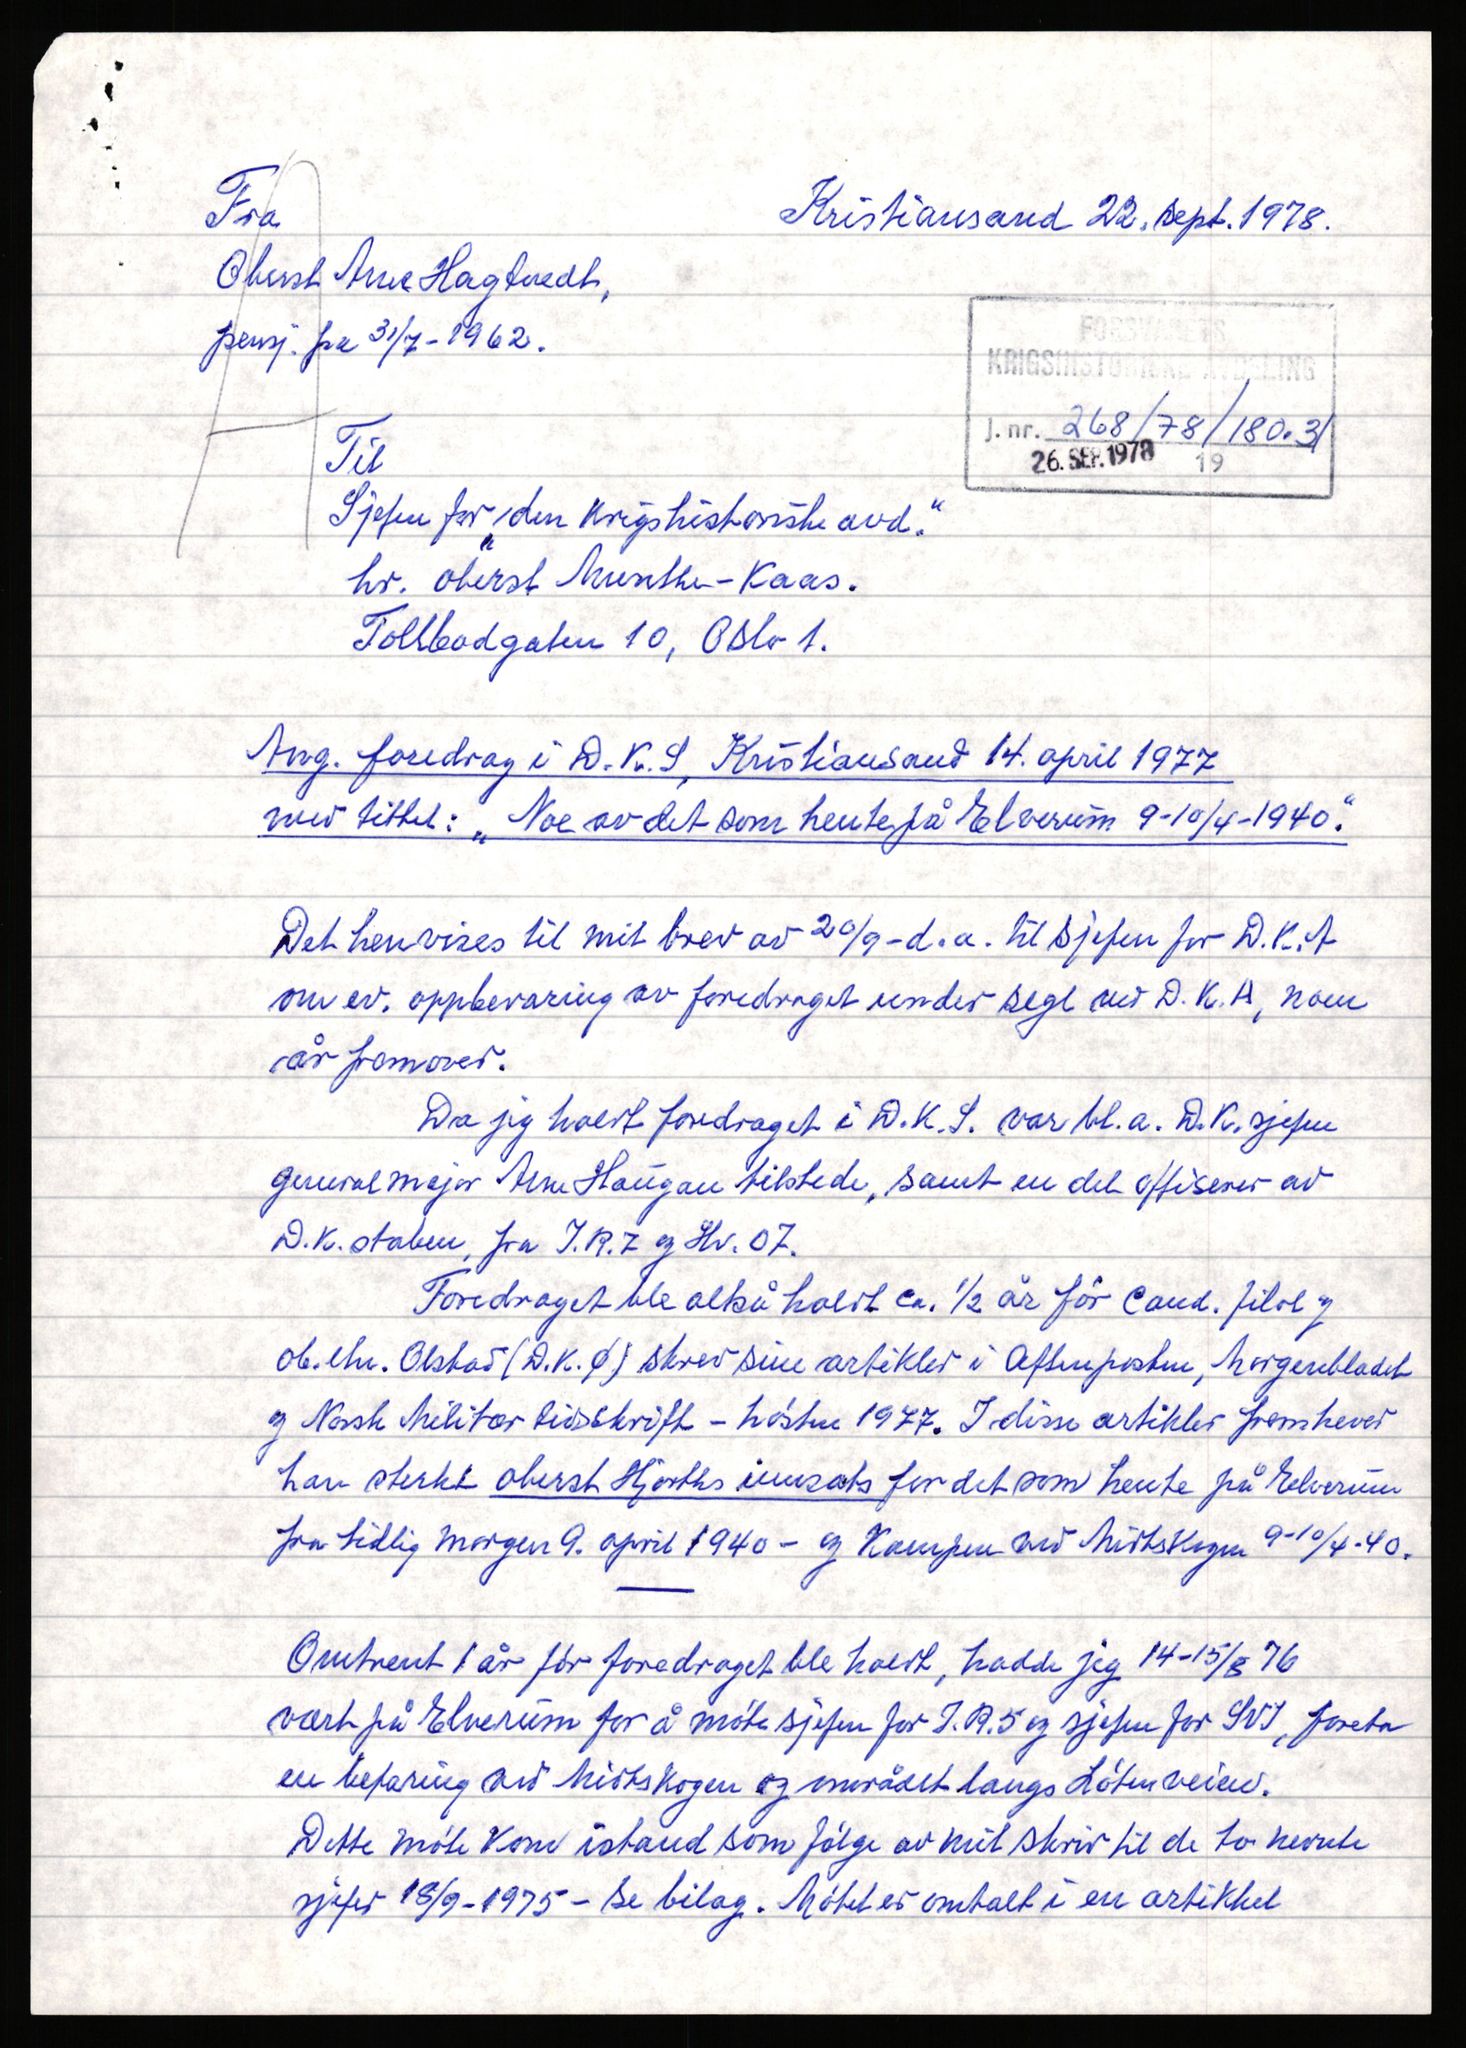 Fra
Kristiansand 22. sept. 1978.
Oberst Arne Hagtvedt,
pensj. fra 31/7-1962.
FORSVARETS
KRIGSHISTORISKE AVDELING
J. nr. 268/78/180.3
26. SEP. 1978 19
Til
Sjefen for „den krigshistoriske avd.“
hr. oberst Munthe-Kaas.
Tollbodgaten 10, Oslo 1.
Ang. foredrag i D.K.S, Kristiansand 14. april 1977
med tittel: „Noe av det som hente på Elverum 9-10/4-1940.“
Det henvises til mit brev av 20/9-d.a. til sjefen for D.K.A
om ev. oppbevaring av foredraget under segl ved D.K.A, noen
år fremover.
Da jeg holdt foredraget i D.K.S. var bl.a. D.K. sjefen
generalmajor Arne Haugan tilstede, samt en del offiserer av
D.K. staben, fra I.R.7 og Hv. 07.
Foredraget ble altså holdt ca. 1/2 år før Cand. filol og
ob.ltn. Olstad (D.K.Ø) skrev sine artikler i Aftenposten, Morgenbladet
og Norsk Militær tidsskrift - høsten 1977. I disse artikler fremhever
han sterkt oberst Hjorths innsats for det som hente på Elverum
fra tidlig morgen 9. april 1940 - og Kampen ved Midtskogen 9-10/4-40.
Omtrent 1 år før foredraget ble holdt, hadde jeg 14-15/8 76
vært på Elverum for å møte sjefen for I.R.5 og sjefen for SVI, foreta
en befaring ved Midtskogen og området langs Løtenveien.
Dette møte kom istand som følge av mit skriv til de to nevnte
sjefer 18/9-1975 - se bilag. Møtet er omtalt i en artikkel